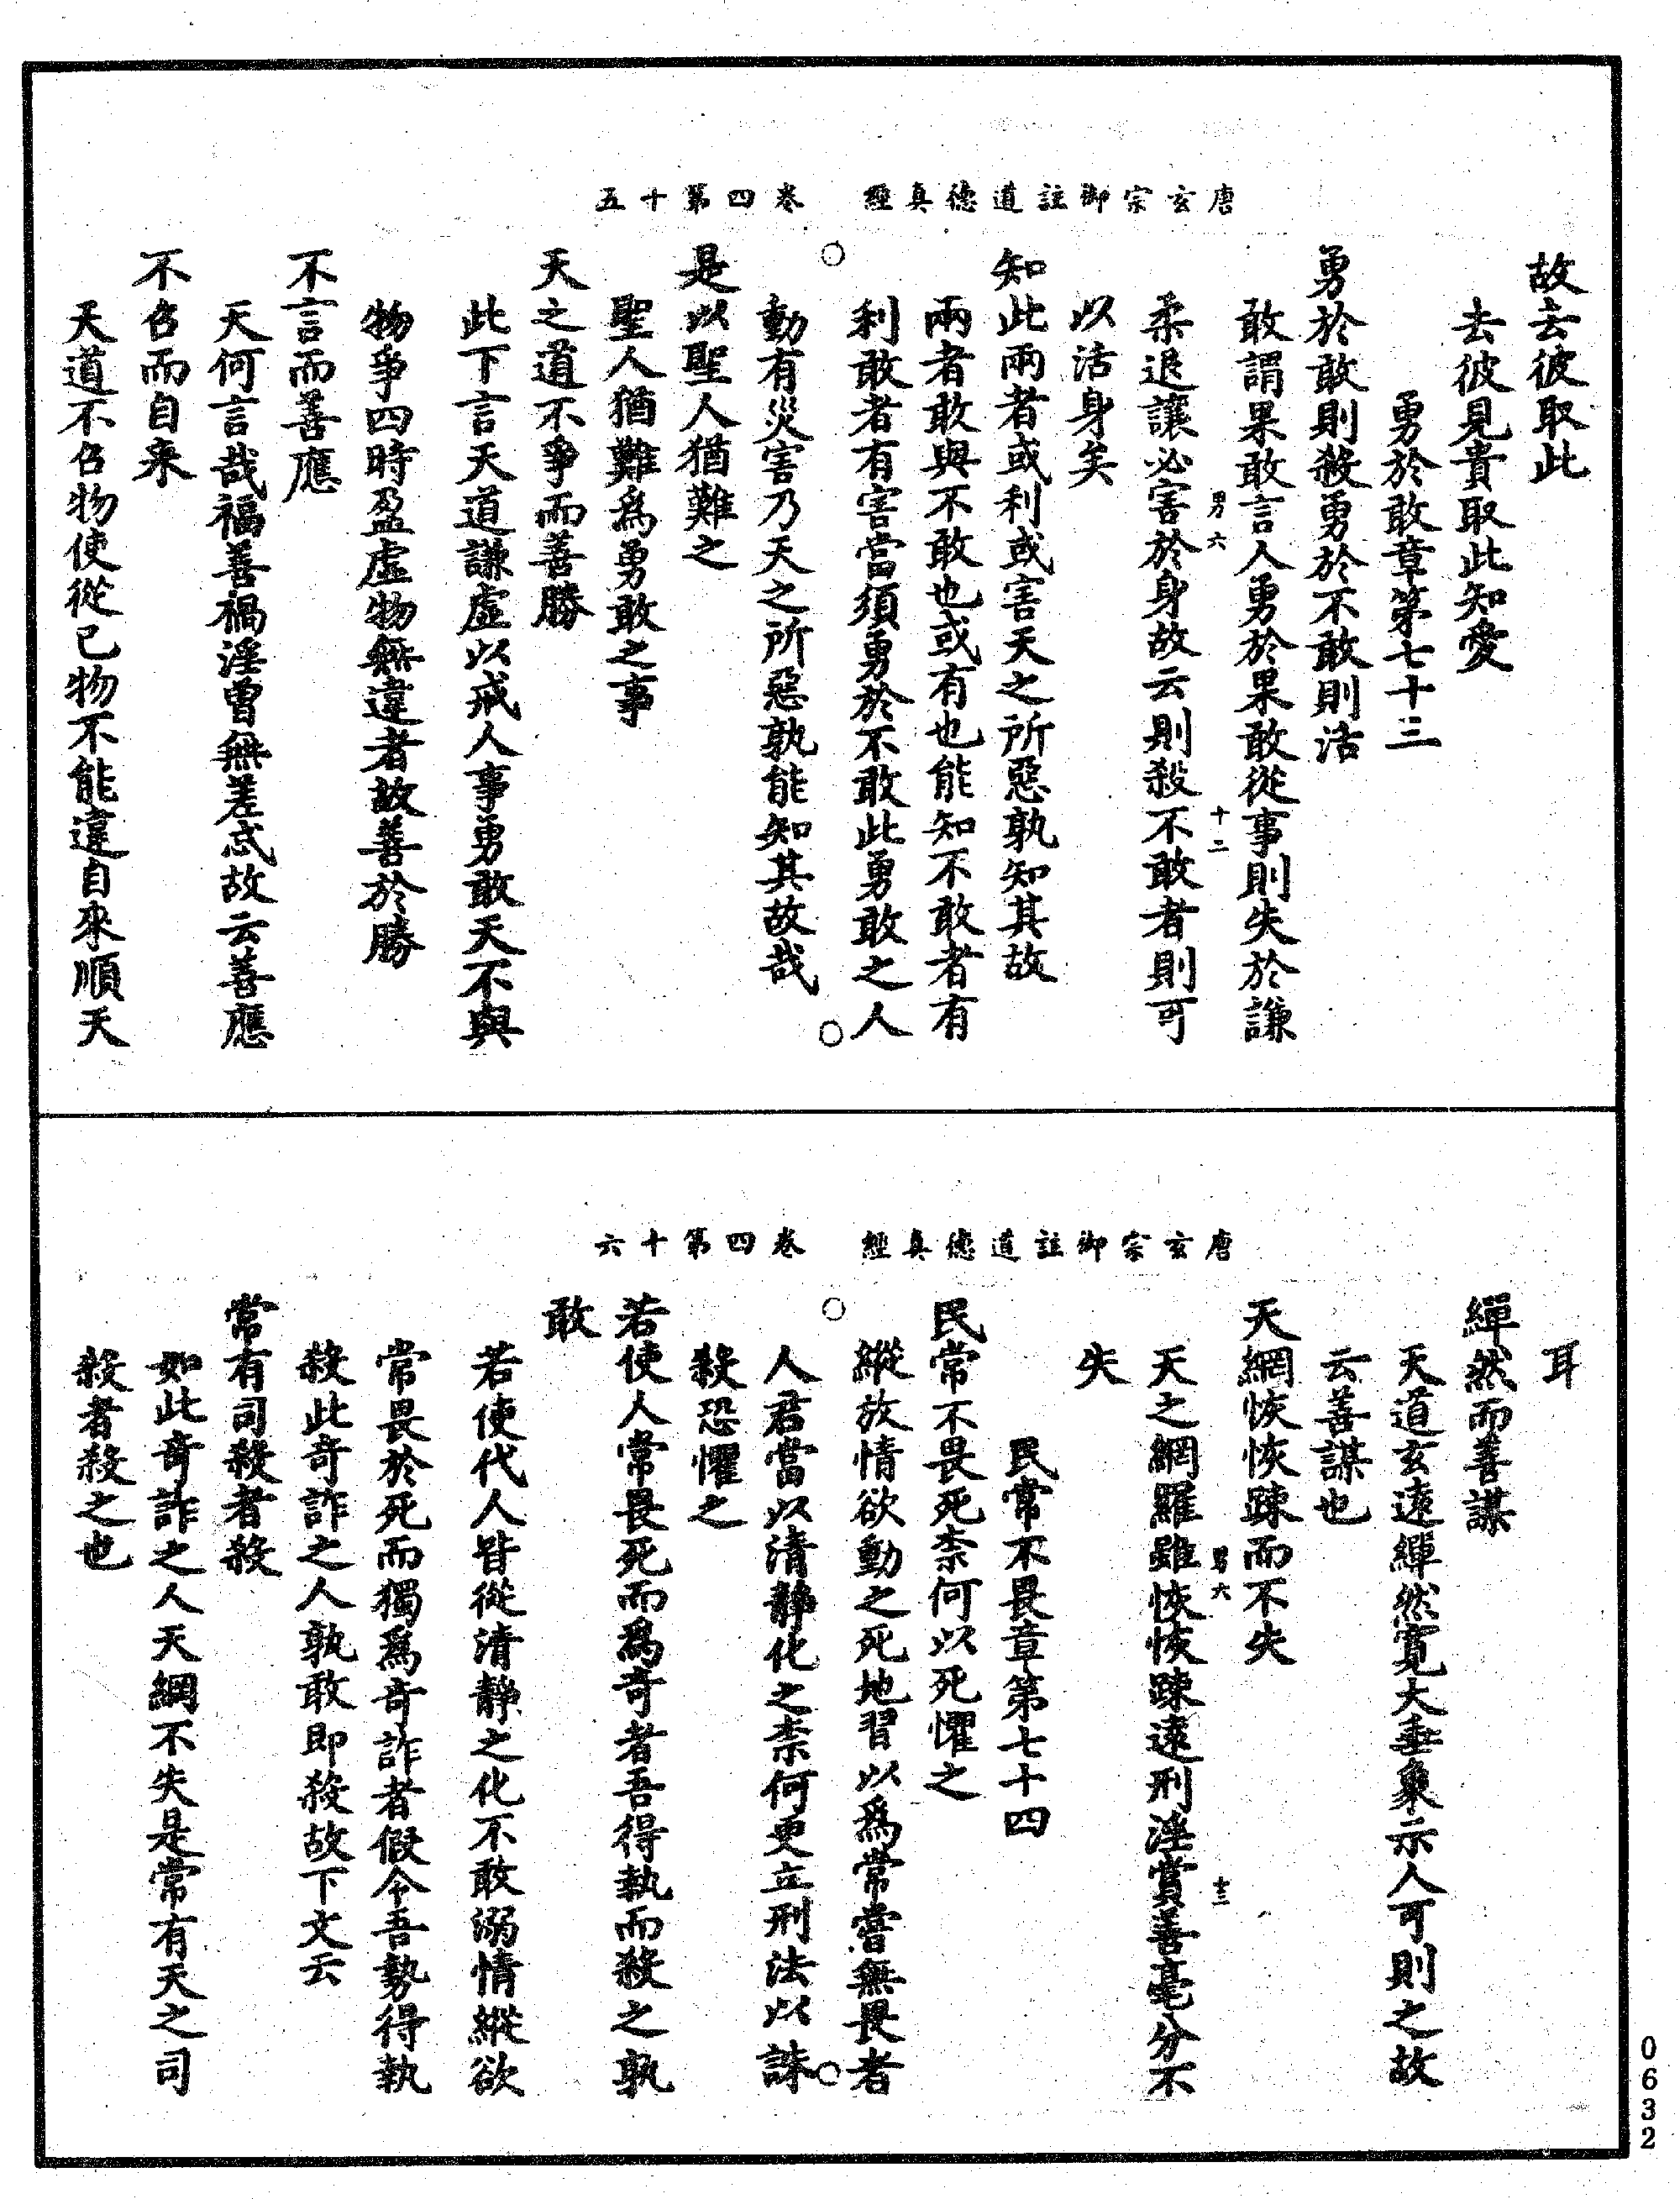 唐玄宗御註道德真經　卷四第十五
故去彼取此
去彼見貴取此知愛
勇於敢章第七十三
勇於敢則殺勇於不敢則活
敢謂果敢言人勇於果敢從事則失於謙
男六　十二
柔退讓必害於身故云則殺不敢者則可
以活身矣
知此兩者或利或害天之所惡孰知其故
兩者敢與不敢也或有也能知不敢者有
利敢者有害當須勇於不敢此勇敢之人
動有災害乃天之所惡孰能知其故哉
是以聖人猶難之
聖人猶難為勇敢之事
天之道不爭而善勝
此下言天道謙虛以戒人事勇敢天不與
物爭四時盈虛物無違者故善於勝
不言而善應
天何言哉福善禍淫曾無差忒故云善應
不召而自来
天道不召物使從已物不能違自來順天
唐玄宗御註道德真經　卷四第十六
耳
繟然而善謀
天道玄遠繟然寬大垂象示人可則之故
云善謀也
天網恢恢踈而不失
男六　十三
天之網羅雖恢恢踈遠刑淫賞善毫分不
失
民常不畏章第七十四
民常不畏死柰何以死懼之
縱放情欲動之死地習以為常嘗無畏者
人君當以清靜化之柰何更立刑法以誅
殺恐懼之
若使人常畏死而為奇者吾得執而殺之孰
敢
若使代人皆從清靜之化不敢溺情縱欲
常畏於死而獨為奇詐者假令吾勢得執
殺此奇詐之人孰敢即殺故下文云
常有司殺者殺
如此奇詐之人天網不失是常有天之司
殺者殺之也
0632